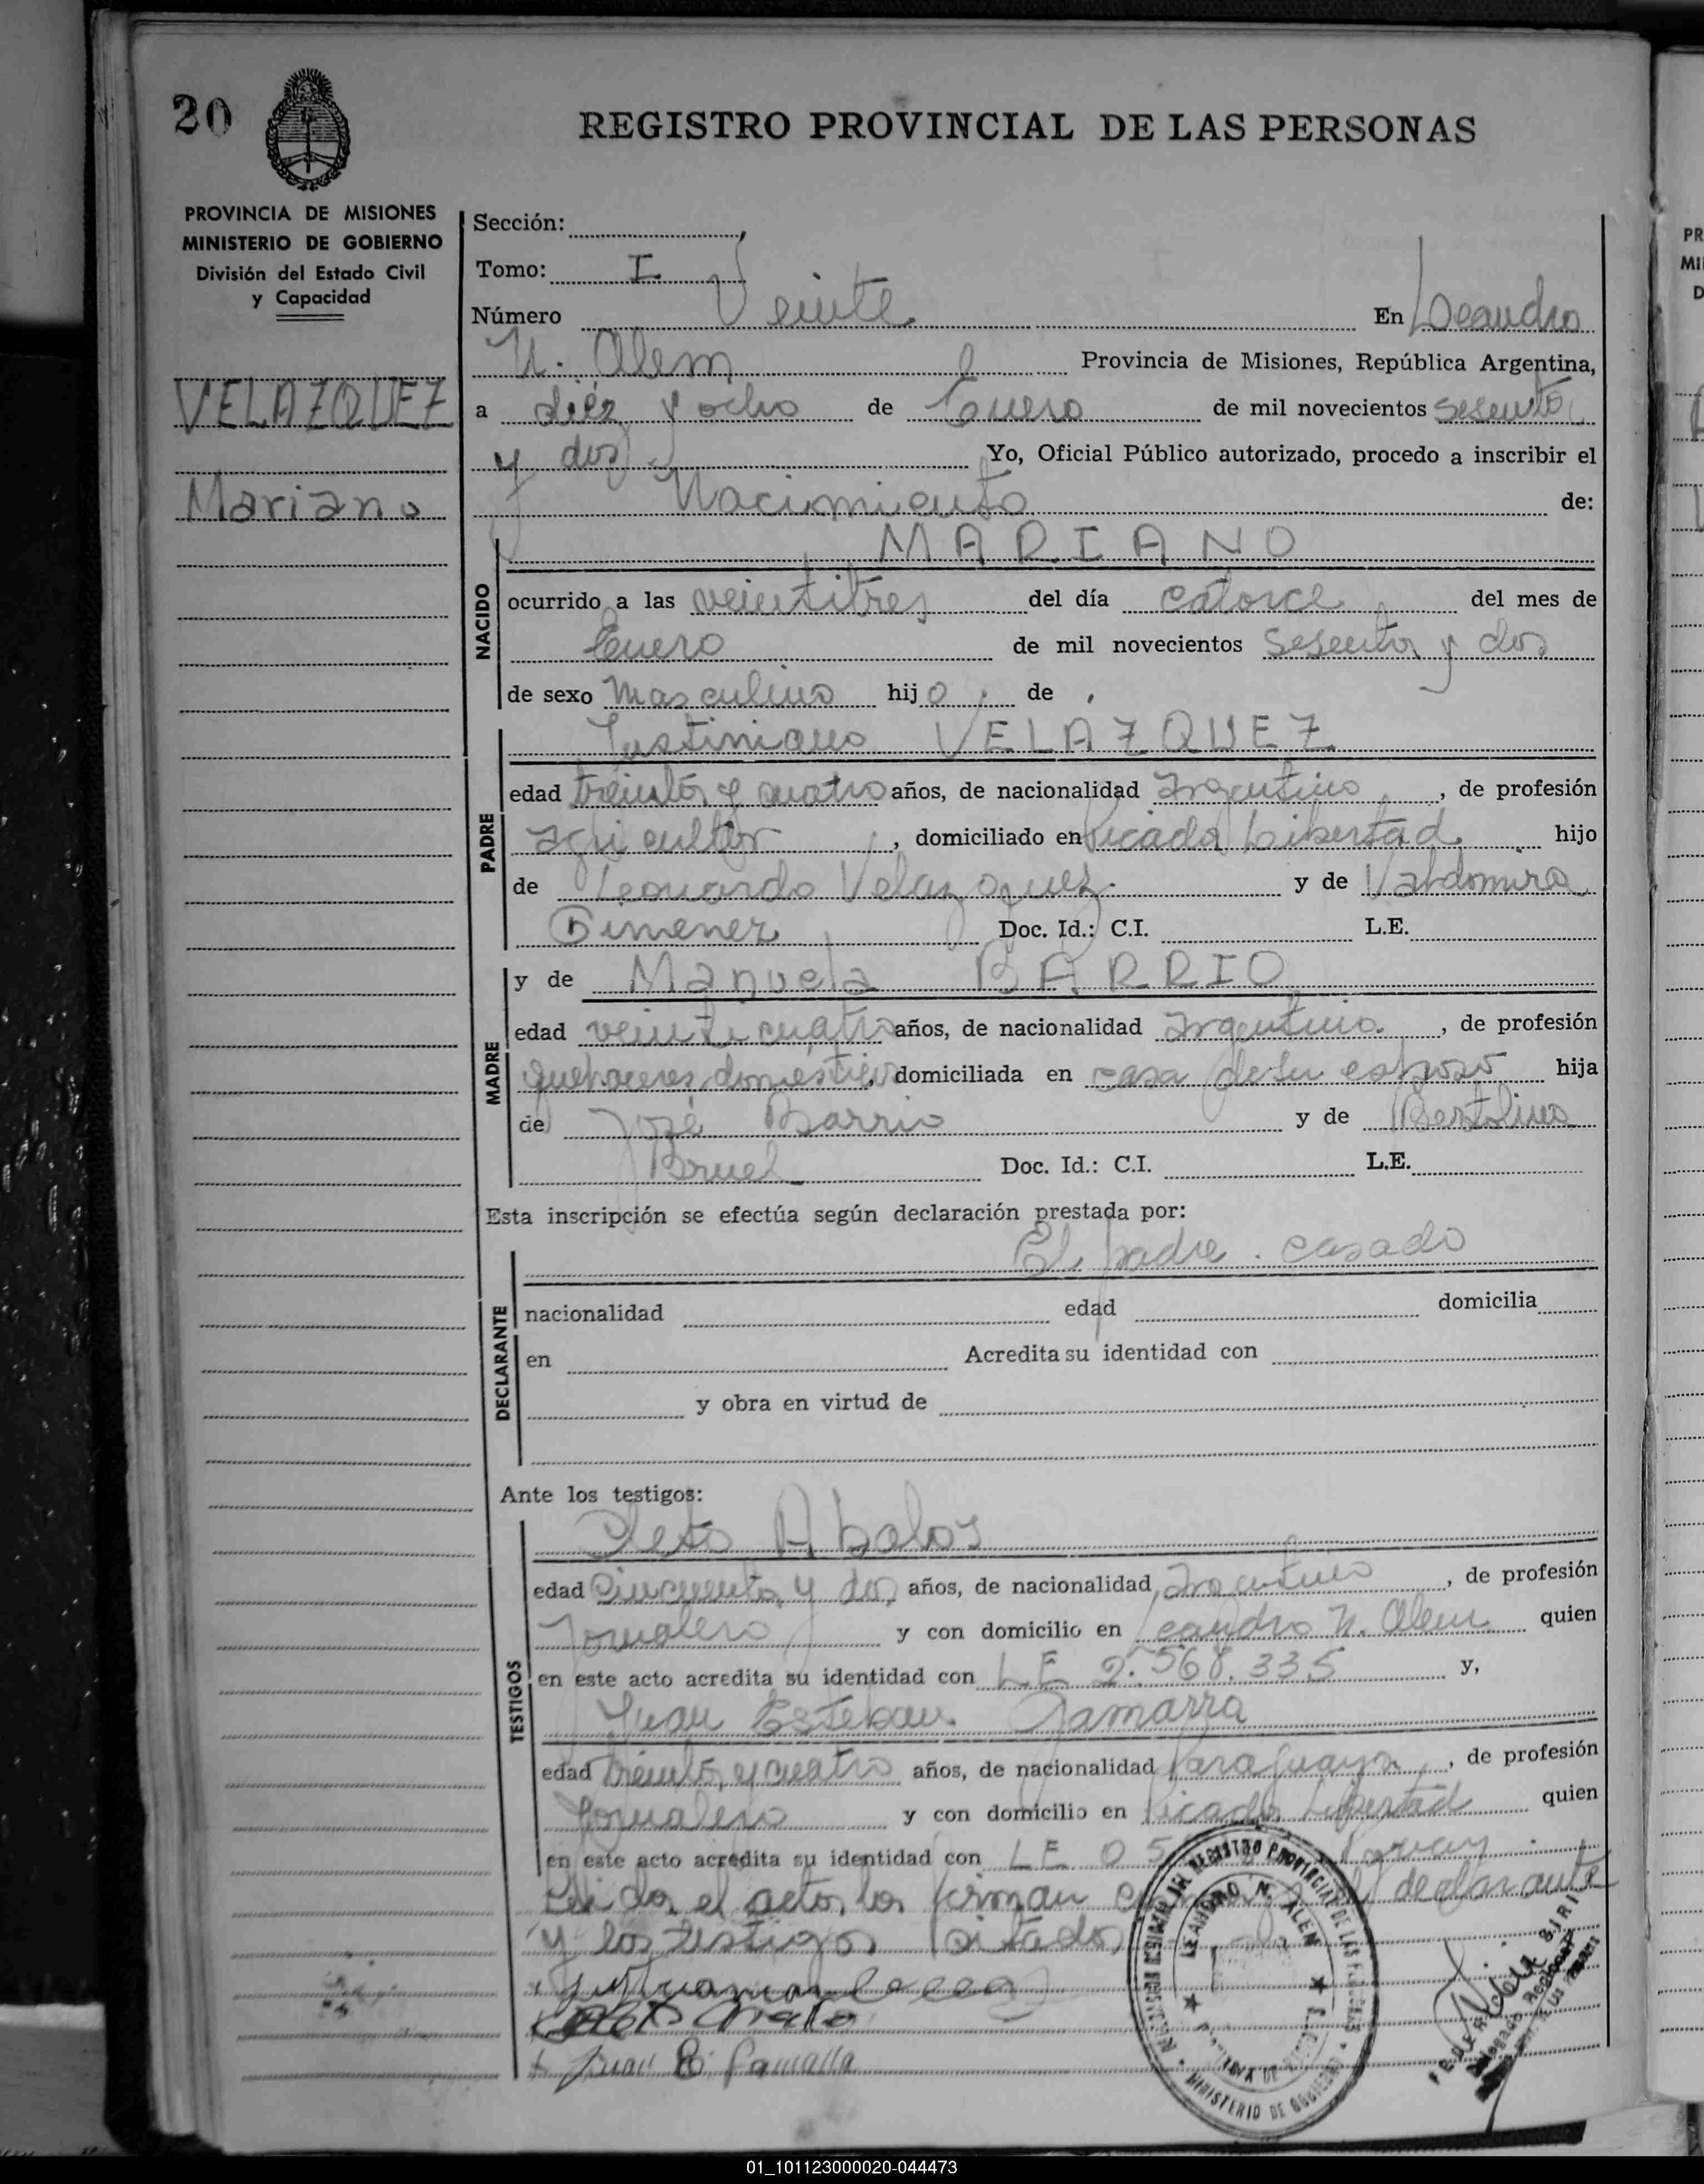 20
REGISTRO PROVINCIAL DE LAS PERSONAS
PROVINCIA DE MISIONES
MINISTERIO DE GOBIERNO
División del Estado Civil
y Capacidad
VELAZQUEZ
Mariano
Sección:
Tomo: I
Número Veinte En Leandro
N. Alem Provincia de Misiones, República Argentina,
a diez y ocho de Enero de mil novecientos sesenta
y dos Yo, Oficial Público autorizado, procedo a inscribir el
Nacimiento de:
MARIANO
NACIDO
ocurrido a las veintitres del día catorce del mes de
Enero de mil novecientos sesenta y dos
de sexo masculino hijo de
Justiniano VELAZQUEZ
PADRE
edad treinta y cuatro años, de nacionalidad argentino, de profesión
agricultor, domiciliado en Picada Libertad hijo
de Leonardo Velazquez y de Valdomira
Gimenez Doc. Id.: C.I. L.E.
y de Manuela BARRIO
MADRE
edad veinticuatro años, de nacionalidad argentina, de profesión
quehaceres domésticos, domiciliada en casa de su esposo hija
de José Barrio y de Bertolina
Bruel Doc. Id.: C.I. L.E.
Esta inscripción se efectúa según declaración prestada por:
El padre. casado
DECLARANTE
nacionalidad edad domicilia
en Acredita su identidad con
y obra en virtud de
Ante los testigos:
Cleto Abalos
TESTIGOS
edad cincuenta y dos años, de nacionalidad argentino, de profesión
Jornalero y con domicilio en Leandro N. Alem quien
en este acto acredita su identidad con LE 2.568.335 y,
Juan Esteban Gamarra
edad treinta y cuatro años, de nacionalidad Paraguaya, de profesión
Jornalero y con domicilio en Picada Libertad quien
en este acto acredita su identidad con LE 05
Leida el acta, la firman el declarante
y los testigos citados
Juan E. Gamarra
REGISTRO PROVINCIAL DE LAS PERSONAS
LEANDRO N. ALEM
MINISTERIO DE GOBIERNO
01_101123000020-044473